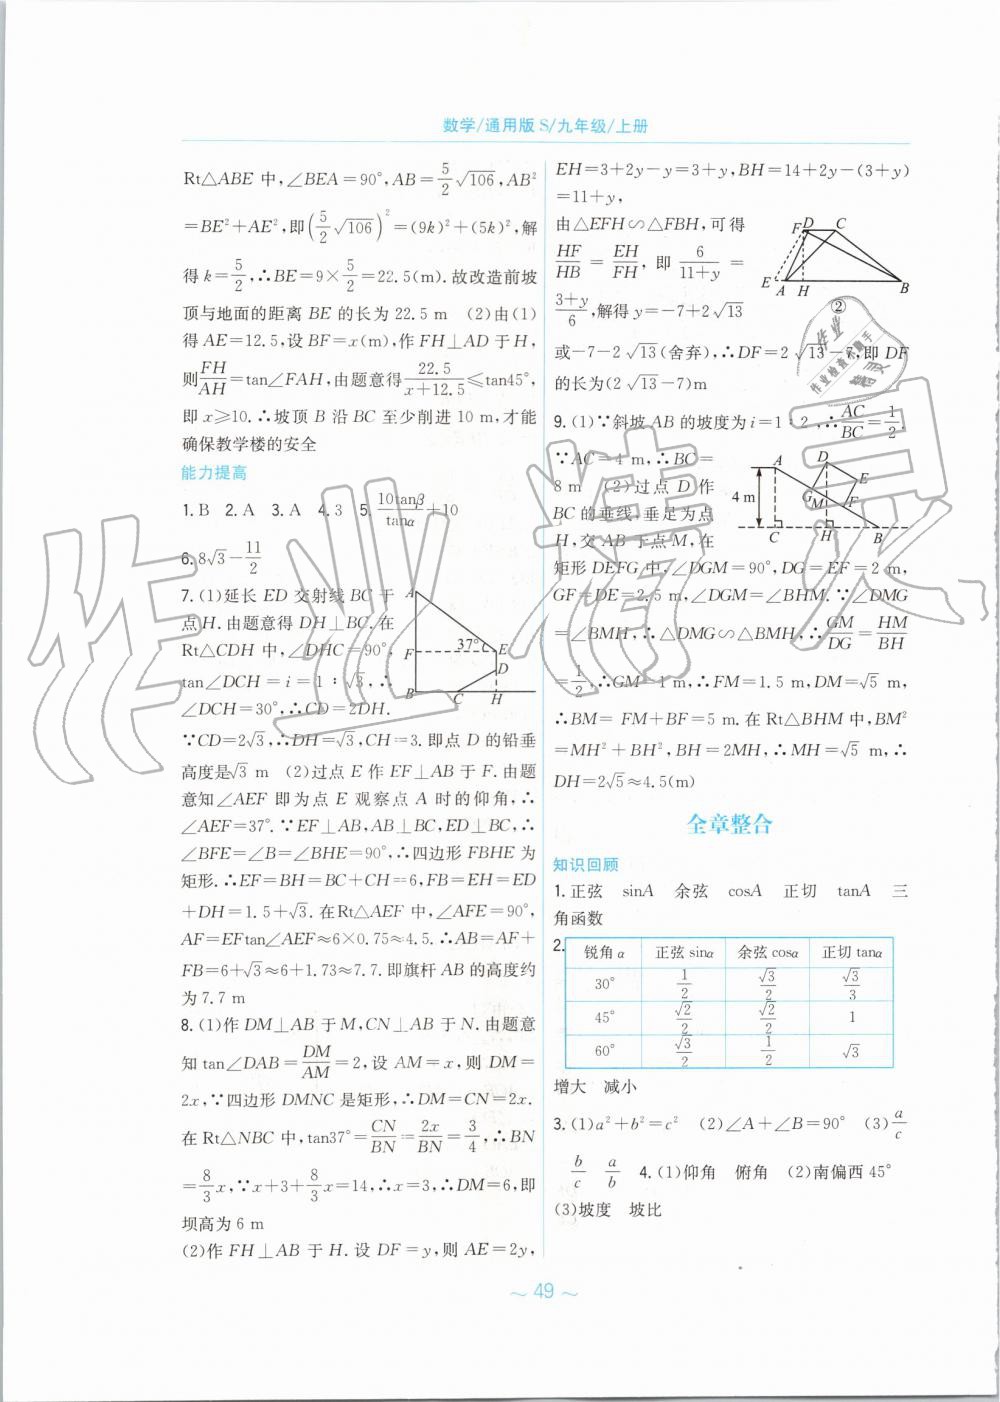 数学/通用版 S/九年级/上册
Rt△ABE 中,∠BEA=90°,AB=5/2√106,AB²
=BE²+AE²,即(5/2√106)²=(9k)²+(5k)²,解
得k=5/2,∴BE=9×5/2=22.5(m).故改造前坡
顶与地面的距离 BE 的长为 22.5 m (2)由(1)
得 AE=12.5,设 BF=x(m),作 FH⊥AD 于 H,
则FH/AH=tan∠FAH,由题意得22.5/(x+12.5)≤tan45°,
即 x≥10.∴坡顶 B 沿 BC 至少削进 10 m,才能
确保教学楼的安全
能力提高
1.B 2.A 3.A 4.3 5.10tanβ/tanα+10
6.8√3−11/2
7.(1)延长 ED 交射线 BC 于
点 H.由题意得 DH⊥BC.在
Rt△CDH 中,∠DHC=90°,
tan∠DCH=i=1∶√3,∴
∠DCH=30°,∴CD=2DH.
∵CD=2√3,∴DH=√3,CH=3.即点 D 的铅垂
高度是√3 m (2)过点 E 作 EF⊥AB 于 F.由题
意知∠AEF 即为点 E 观察点 A 时的仰角,∴
∠AEF=37°.∵EF⊥AB,AB⊥BC,ED⊥BC,∴
∠BFE=∠B=∠BHE=90°,∴四边形 FBHE 为
矩形.∴EF=BH=BC+CH=6,FB=EH=ED
+DH=1.5+√3.在Rt△AEF 中,∠AFE=90°,
AF=EFtan∠AEF≈6×0.75≈4.5.∴AB=AF+
FB=6+√3≈6+1.73≈7.7.即旗杆 AB 的高度约
为 7.7 m
A
F
37°
E
D
B
C
H
8.(1)作 DM⊥AB 于 M,CN⊥AB 于 N.由题意
知 tan∠DAB=DM/AM=2,设 AM=x,则 DM=
2x,∵四边形 DMNC 是矩形,∴DM=CN=2x.
在 Rt△NBC 中,tan37°=CN/BN=2x/BN=3/4,∴BN
=8/3x,∵x+3+8/3x=14,∴x=3,∴DM=6,即
坝高为 6 m
(2)作 FH⊥AB 于 H.设 DF=y,则 AE=2y,
EH=3+2y−y=3+y,BH=14+2y−(3+y)
=11+y,
由△EFH∽△FBH,可得
HF/HB=EH/FH,即6/(11+y)=
(3+y)/6,解得 y=−7+2√13
或−7−2√13(舍弃),∴DF=2√13−7,即 DF
的长为(2√13−7)m
F
D
C
E
A
H
B
②
9.(1)∵斜坡 AB 的坡度为 i=1∶2,∴AC/BC=1/2.
∵AC=4 m,∴BC=
8 m (2)过点 D 作
BC 的垂线,垂足为点
H,交 AB 于点 M,在
矩形 DEFG 中,∠DGM=90°,DG=EF=2 m,
GF=DE=2.5 m,∠DGM=∠BHM.∵∠DMG
=∠BMH,∴△DMG∽△BMH,∴GM/DG=HM/BH
=1/2,∴GM=1 m,∴FM=1.5 m,DM=√5 m,
∴BM= FM+BF=5 m.在 Rt△BHM 中,BM²
=MH²+BH²,BH=2MH,∴MH=√5 m,∴
DH=2√5≈4.5(m)
A
D
E
G
M
F
4 m
C
H
B
全章整合
知识回顾
1.正弦 sinA 余弦 cosA 正切 tanA 三
角函数
2.
锐角 α 正弦 sinα 余弦 cosα 正切 tanα
30° 1/2 √3/2 √3/3
45° √2/2 √2/2 1
60° √3/2 1/2 √3
增大 减小
3.(1)a²+b²=c² (2)∠A+∠B=90° (3)a/c
b/c a/b 4.(1)仰角 俯角 (2)南偏西 45°
(3)坡度 坡比
~ 49 ~
作业精灵